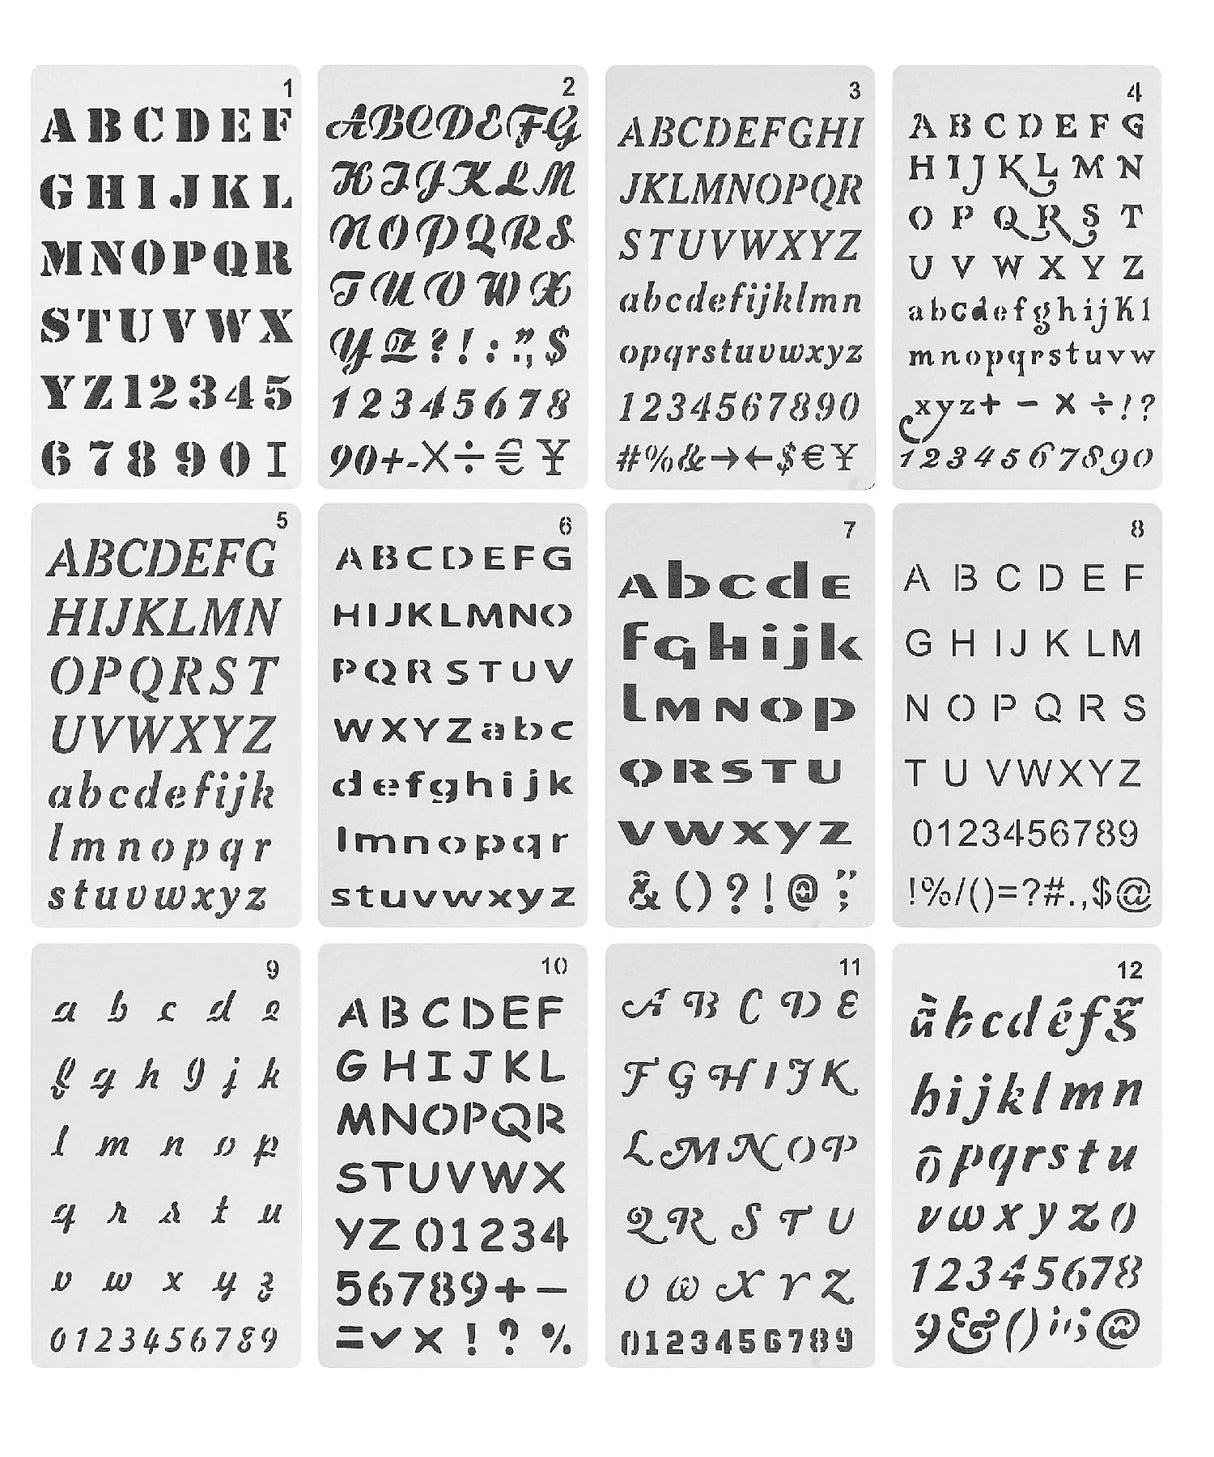 1
ABCDEF
GHIJKL
MNOPQR
STUVWX
YZ12345
67890I
2
ABCDEFG
HIJKLM
NOPQRS
TUVWX
YZ?!:",$
12345678
90+-×÷€¥
3
ABCDEFGHI
JKLMNOPQR
STUVWXYZ
abcdefijklmn
opqrstuvwxyz
1234567890
#%&→←$€¥
4
ABCDEFG
HIJKLMN
OPQRST
UVWXYZ
abcdefghijkl
mnopqrstuvw
xyz+-×÷!?
1234567890
5
ABCDEFG
HIJKLMN
OPQRST
UVWXYZ
abcdefijk
lmnopqr
stuvwxyz
6
ABCDEFG
HIJKLMNO
PQRSTUV
WXYZabc
defghijk
lmnopqr
stuvwxyz
7
abcde
fghijk
lmnop
qrstu
vwxyz
&()?!@";
8
ABCDEF
GHIJKLM
NOPQRS
TUVWXYZ
0123456789
!%/()=?#.,$@
9
a b c d e
f g h g j k
l m n o p
q r s t u
v w x y z
0123456789
10
ABCDEF
GHIJKL
MNOPQR
STUVWX
YZ01234
56789+-
=✓×!?%
11
ABCDE
FGHIJK
LMNOP
QRSTU
VWXYZ
0123456789
12
àbcdéfg̃
hijklmn
ôpqrstu
vwxyz0
12345678
9&()!";@